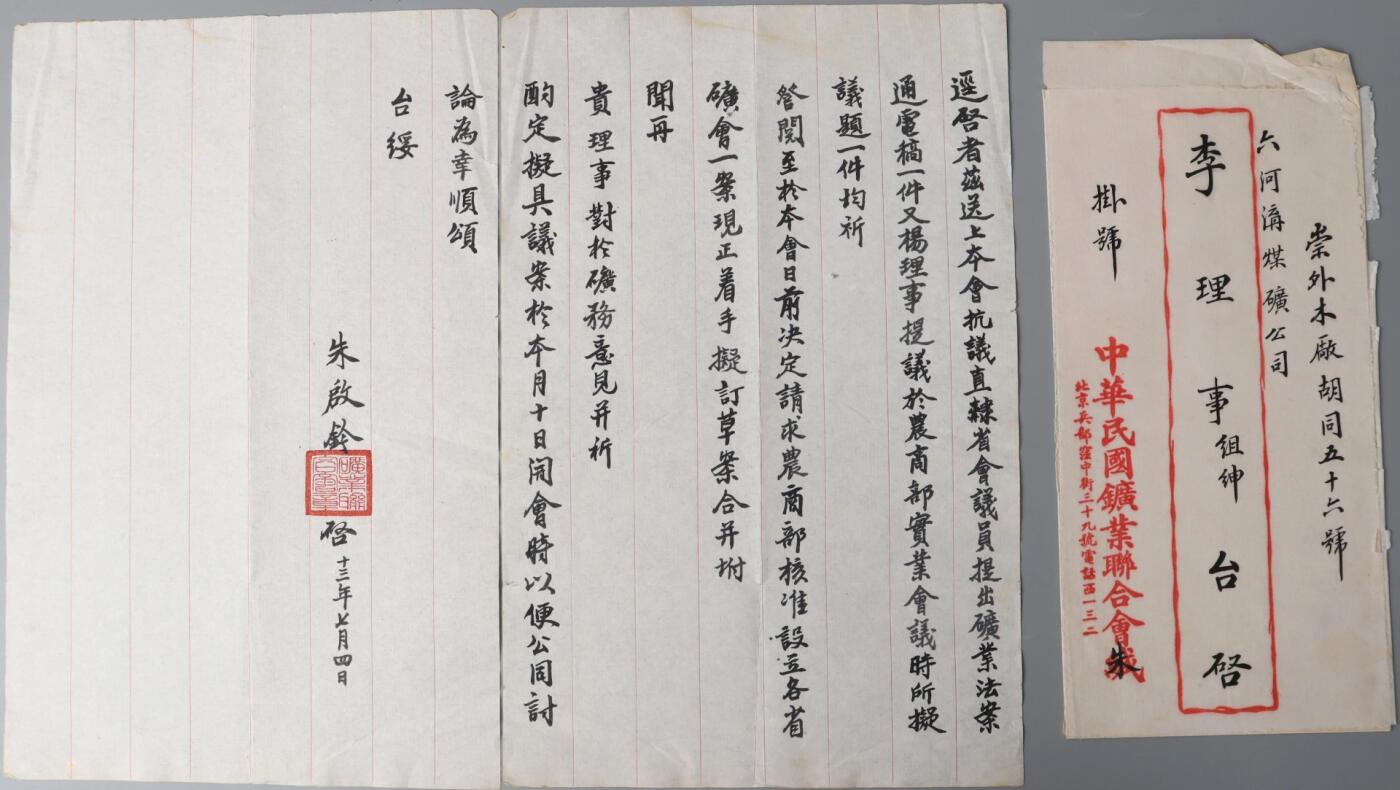 崇外木廠胡同五十六號
六河溝煤礦公司
李理事組紳台啓
掛號
中華民國鑛業聯合會緘
朱
北京兵部窪中街三十九號電話西一三二
逕啓者茲送上本會抗議直隸省會議員提出礦業法案
通電稿一件又楊理事提議於農商部實業會議時所擬
議題一件均祈
詧閱至於本會日前決定請求農商部核准設立各省
礦會一案現正着手擬訂草案合并坿
聞再
貴理事對於礦務意見并祈
酌定擬具議案於本月十日開會時以便公同討
論為幸順頌
台綏
朱啟鈐
啓
十三年七月四日